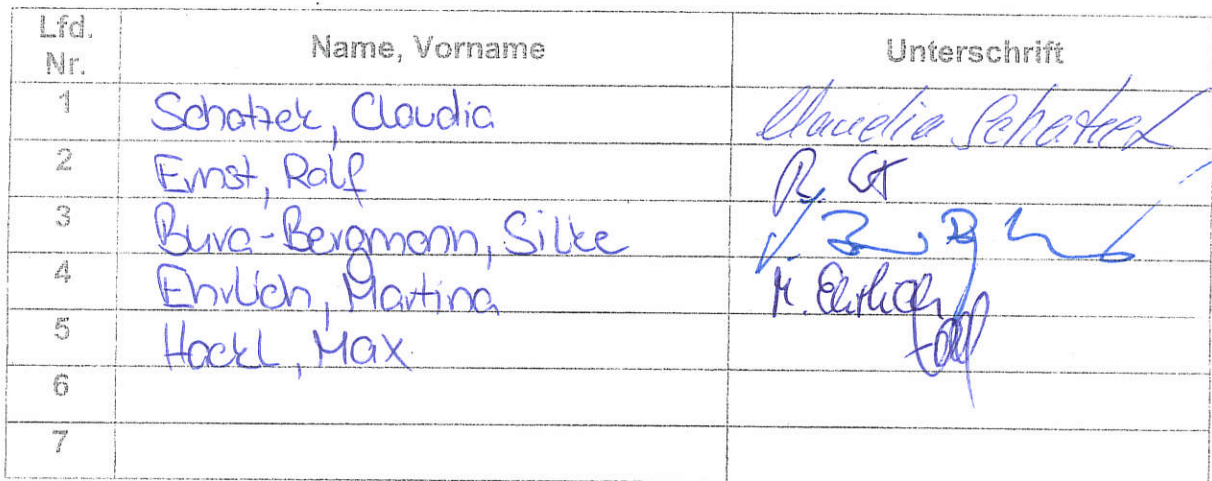 Lfd. Nr. Name, Vorname Unterschrift
1 Schatzek, Claudia Claudia Schatzek
2 Ernst, Ralf
3 Bura-Bergmann, Silke
4 Ehrlich, Martina M. Ehrlich
5 Hackl, Max
6
7